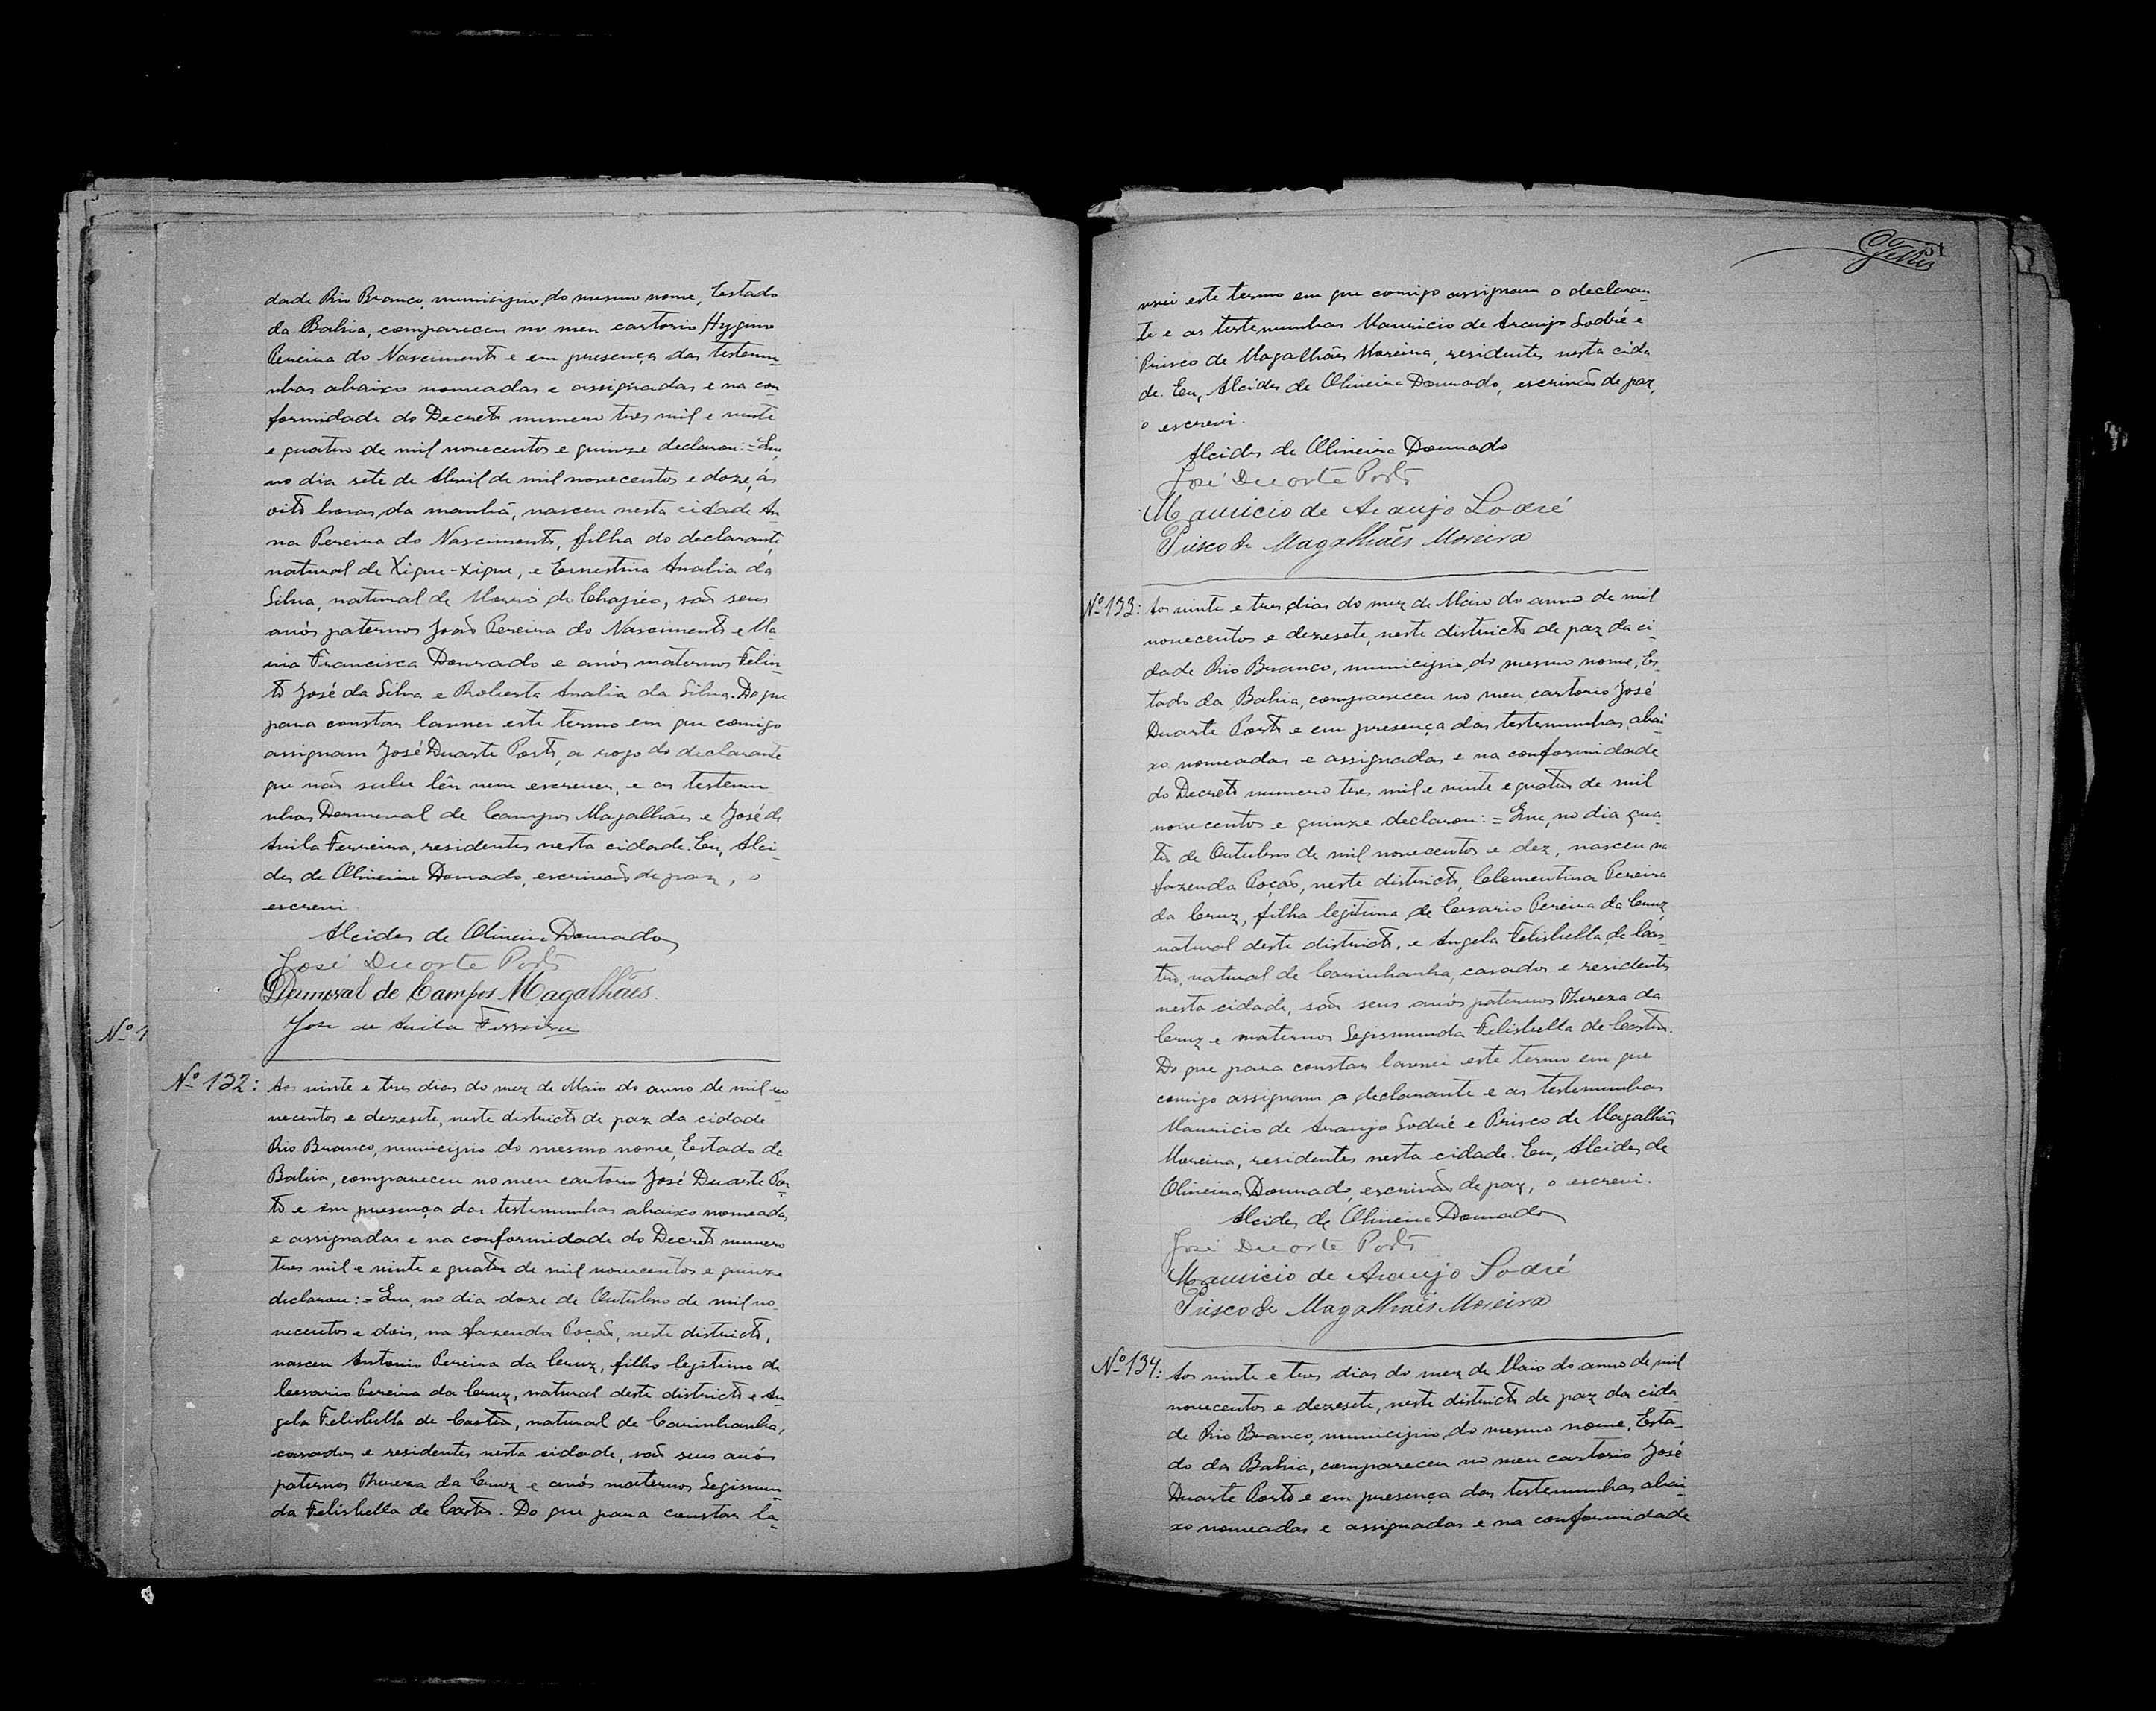 dade Rio Branco, municipio do mesmo nome, Estado
da Bahia, compareceu no meu cartorio Hygino
Pereira do Nascimento e em presença das testemu-
nhas abaixo nomeadas e assignadas e na con-
formidade do Decreto numero tres mil e vinte
e quatro de mil novecentos e quinze declarou:= Que,
no dia sete de Abril de mil novecentos e doze, ás
oito horas da manhã, nasceu nesta cidade An-
na Pereira do Nascimento, filha do declarante,
natural de Xique-xique, e Ernestina Analia da
Silva, natural de Morro do Chapéo, são seus
avós paternos João Pereira do Nascimento e Ma-
ria Francisca Dourado e avós maternos Felin-
to José da Silva e Roberta Analia da Silva. Do que
para constar lavrei este termo em que comigo
assignam José Duarte Porto, a rogo do declarante
que não sabe lêr nem escrever, e as testemu-
nhas Dermeval de Campos Magalhães e José de
Avila Ferreira, residentes nesta cidade. Eu, Alci-
des de Oliveira Dourado, escrivão de paz, o
escrevi.
Alcides de Oliveira Dourado
José Duarte Porto
Dermeval de Campos Magalhães.
José de Avila Ferreira
Nº 132: Aos vinte e tres dias do mez de Maio do anno de mil no-
vecentos e dezesete, neste districto de paz da cidade
Rio Branco, municipio do mesmo nome, Estado da
Bahia, compareceu no meu cartorio José Duarte Por-
to e em presença das testemunhas abaixo nomeadas
e assignadas e na conformidade do Decreto numero
tres mil e vinte e quatro de mil novecentos e quinze
declarou:= Que, no dia doze de Outubro de mil no-
vecentos e dois, na fazenda Poção, neste districto,
nasceu Antonio Pereira da Cruz, filho legitimo de
Cesario Pereira da Cruz, natural deste districto e An-
gela Felisbella de Castro, natural de Carinhanha,
casados e residentes nesta cidade, são seus avós
paternos Thereza da Cruz e avós maternos Segismun-
da Felisbella de Castro. Do que para constar la-
51
vrei este termo em que comigo assignam o declaran-
te e as testemunhas Mauricio de Araujo Sodré e
Prisco de Magalhães Moreira, residentes nesta cida
de. Eu, Alcides de Oliveira Dourado, escrivão de paz,
o escrevi.
Alcides de Oliveira Dourado
José Duarte Porto
Mauricio de Araujo Sodré
Prisco de Magalhães Moreira
Nº 133: Aos vinte e tres dias do mez de Maio do anno de mil
novecentos e dezesete, neste districto de paz da ci-
dade Rio Branco, municipio do mesmo nome, Es-
tado da Bahia, compareceu no meu cartorio José
Duarte Porto e em presença das testemunhas abai-
xo nomeadas e assignadas e na conformidade
do Decreto numero tres mil e vinte e quatro de mil
novecentos e quinze declarou:= Que, no dia qua-
tro de Outubro de mil novecentos e dez, nasceu na
fazenda Poção, neste districto, Clementina Pereira
da Cruz, filha legitima de Cesario Pereira da Cruz,
natural deste districto, e Angela Felisbella de Cas-
tro, natural de Carinhanha, casados e residentes
nesta cidade, são seus avós paternos Thereza da
Cruz e maternos Segismunda Felisbella de Castro.
Do que para constar lavrei este termo em que
comigo assignam o declarante e as testemunhas
Mauricio de Araujo Sodré e Prisco de Magalhães
Moreira, residentes nesta cidade. Eu, Alcides de
Oliveira Dourado, escrivão de paz, o escrevi.
Alcides de Oliveira Dourado
José Duarte Porto
Mauricio de Araujo Sodré
Prisco de Magalhães Moreira
Nº 134: Aos vinte e tres dias do mez de Maio do anno de mil
novecentos e dezesete, neste districto de paz da cida-
de Rio Branco, municipio do mesmo nome, Esta-
do da Bahia, compareceu no meu cartorio José
Duarte Porto e em presença das testemunhas abai-
xo nomeadas e assignadas e na conformidade